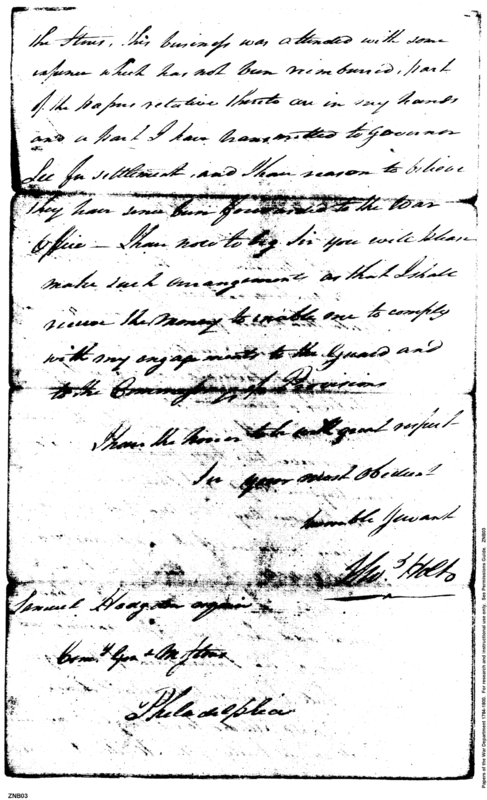 the Stores, this business was attended with some
expence which has not been reimbursed, part
of the papers relative thereto are in my hands
and a part I have transmitted to Governor
Lee for settlement, and I have reason to believe
they have since been forwarded to the War
Office — I have now to beg Sir you will please
make such arrangements as that I shall
receive the money to enable me to comply
with my engagements to the Guard and
to the Commissary of Provisions
I have the honor to be with great respect
Sir your most obedient
humble Servant
Tho.s Holt
Samuel Hodgdon
Com.y Gen.l M. Stores
Philadelphia
ZNB03
Papers of the War Department 1784-1800. For research and instructional use only. See Permissions Guide. ZNB03